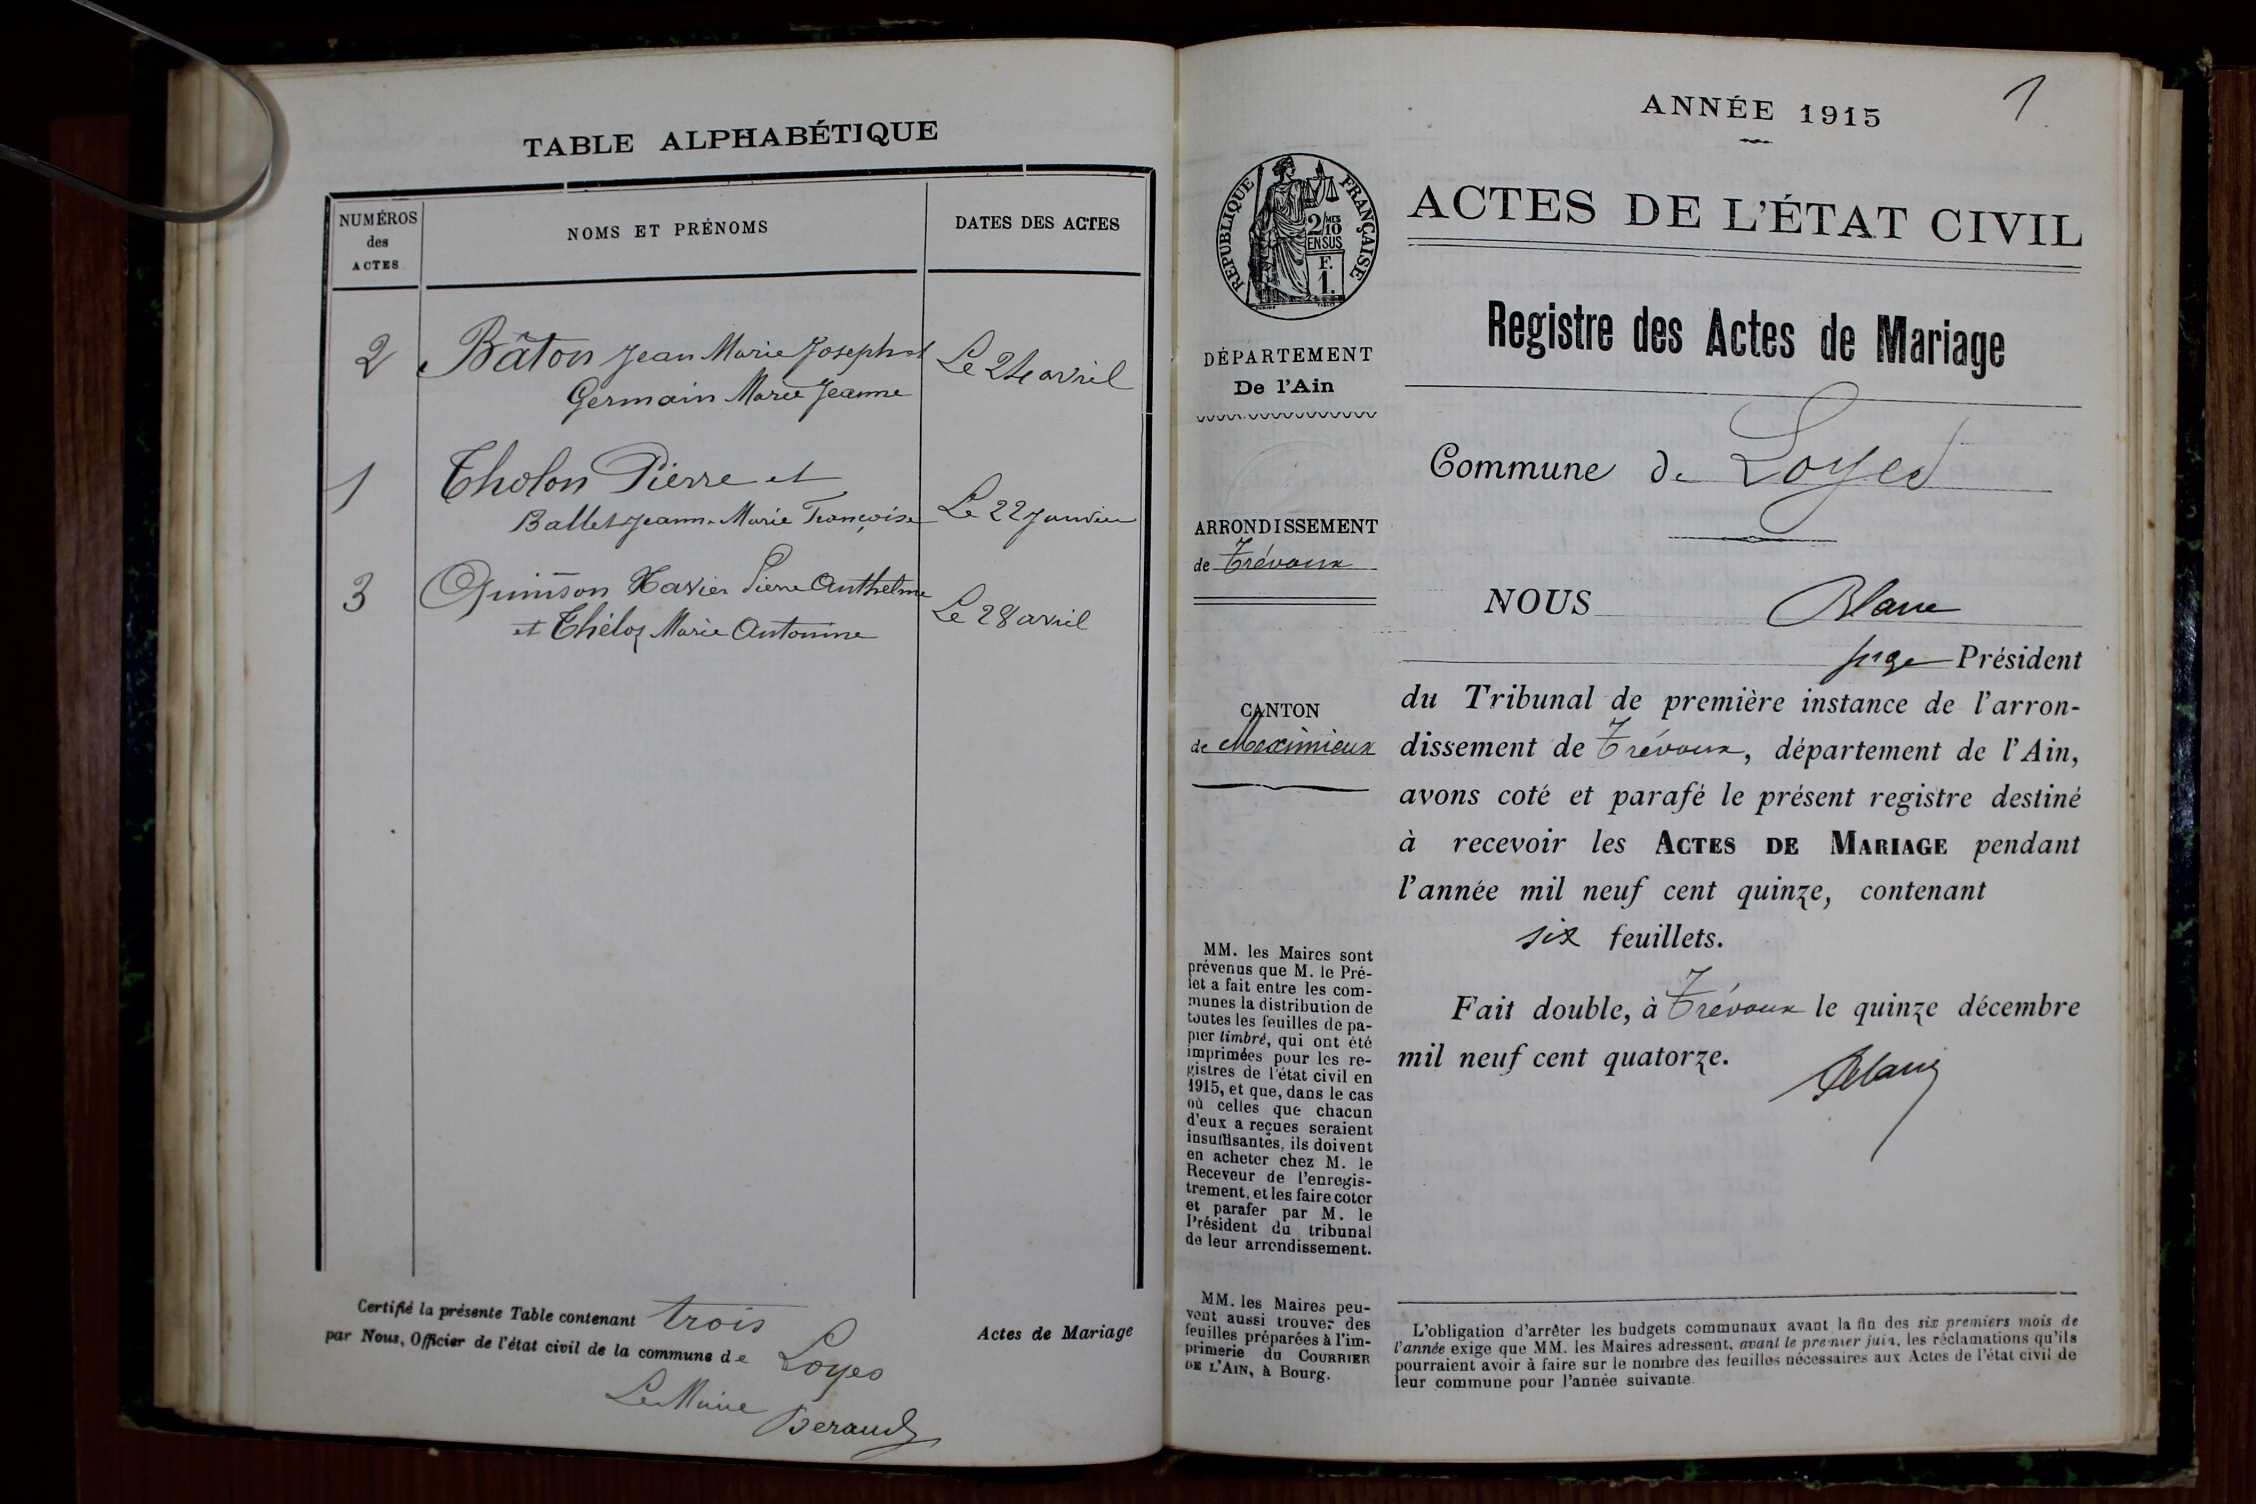 TABLE ALPHABÉTIQUE
NUMÉROS
des
ACTES
NOMS ET PRÉNOMS
DATES DES ACTES
2 Bâton Jean Marie Joseph et Le 24 avril
Germain Marie Jeanne
1 Tholon Pierre et
Ballet Jeanne Marie Françoise Le 22 janvier
3 Quinson Xavier Pierre Anthelme
et Théloz Marie Antonine Le 28 avril
Certifié la présente Table contenant trois Actes de Mariage
par Nous, Officier de l'état civil de la commune de Loyes
Le Maire
Beraud
1
ANNÉE 1915
RÉPUBLIQUE FRANÇAISE
2/10
MES
EN SUS
F.
1.
ACTES DE L'ÉTAT CIVIL
Registre des Actes de Mariage
DÉPARTEMENT
De l'Ain
Commune de Loyes
ARRONDISSEMENT
de Trévoux
NOUS Blanc
juge Président
CANTON
de Meximieux
du Tribunal de première instance de l'arron-
dissement de Trévoux, département de l'Ain,
avons coté et parafé le présent registre destiné
à recevoir les ACTES DE MARIAGE pendant
l'année mil neuf cent quinze, contenant
six feuillets.
Fait double, à Trévoux le quinze décembre
mil neuf cent quatorze.
Blanc
MM. les Maires sont
prévenus que M. le Pré-
fet a fait entre les com-
munes la distribution de
toutes les feuilles de pa-
pier timbré, qui ont été
imprimées pour les re-
gistres de l'état civil en
1915, et que, dans le cas
où celles que chacun
d'eux a reçues seraient
insuffisantes, ils doivent
en acheter chez M. le
Receveur de l'enregis-
trement, et les faire coter
et parafer par M. le
Président du tribunal
de leur arrondissement.
MM. les Maires peu-
vent aussi trouver des
feuilles préparées à l'im-
primerie du COURRIER
DE L'AIN, à Bourg.
L'obligation d'arrêter les budgets communaux avant la fin des six premiers mois de
l'année exige que MM. les Maires adressent, avant le premier juin, les réclamations qu'ils
pourraient avoir à faire sur le nombre des feuilles nécessaires aux Actes de l'état civil de
leur commune pour l'année suivante.